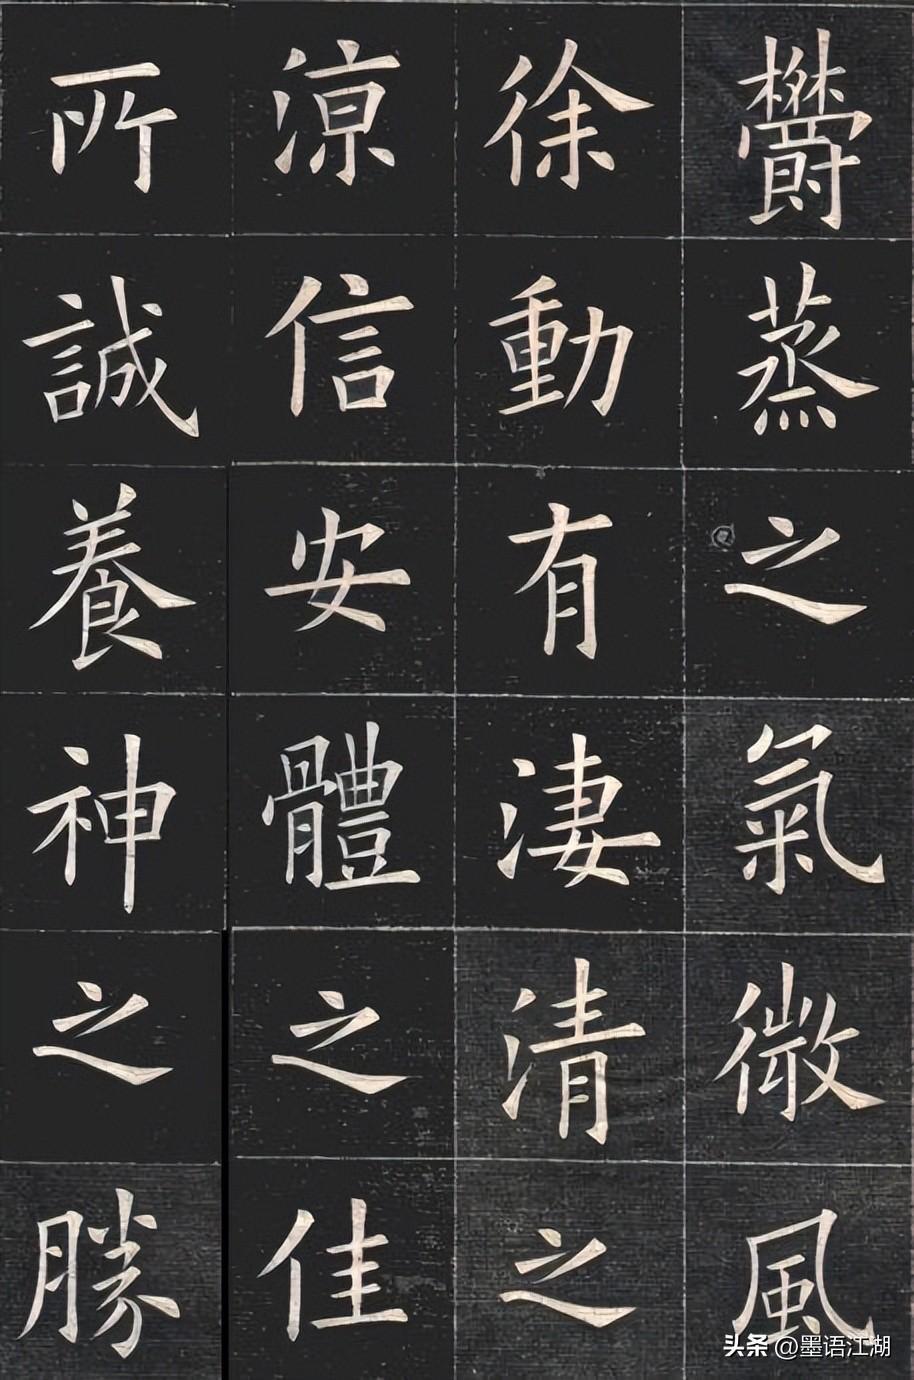 鬱蒸之氣微風
徐動有淒清之
涼信安體之佳
所誠養神之勝
头条 @墨语江湖